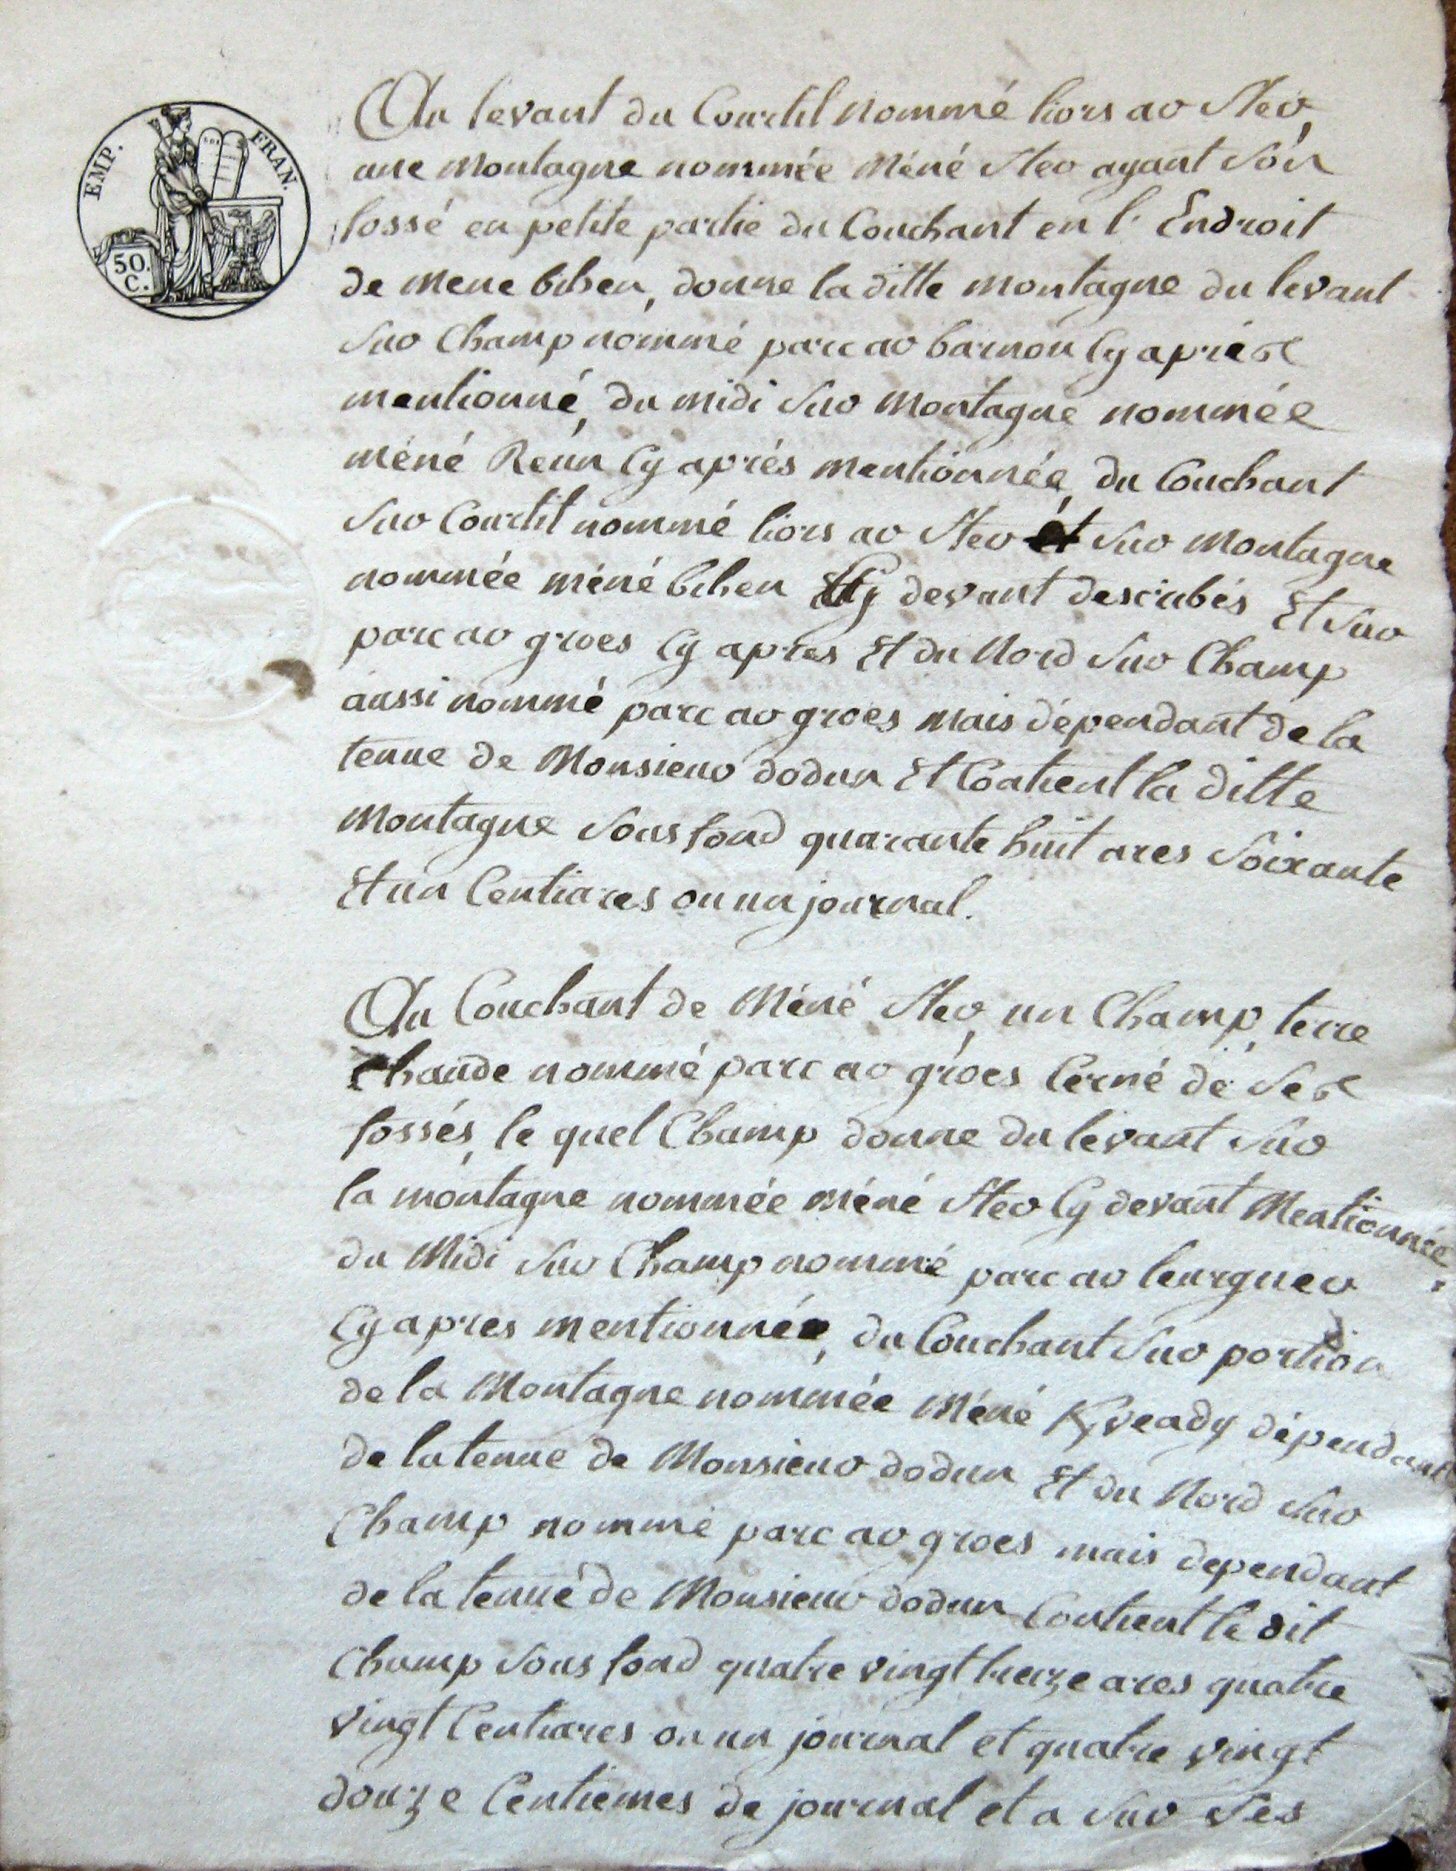 EMP. FRAN.
50.
C.
Au levant du Courtil nommé liors ar Ster,
une Montagne nommée Méné Ster ayant Son
fossé en petite partie du Couchant en l'Endroit
de Mene bihen, donne la ditte montagne du levant
Sur Champ nommé parc ar barnou Cy après
mentionné, du midi Sur Montagne nommée
méné Reün Cy après mentionnée, du Couchant
Sur Courtil nommé liors ar Ster et Sur Montagne
nommée méné bihen Cy devant describés Et Sur
parc ar groes Cy apres Et du Nord Sur Champ
aussi nommé parc ar groes mais dépendant de la
tenue de Monsieur dodun Et Contient la ditte
Montagne Sous fond quarante huit ares Soixante
Et un Centiares ou un journal.
Au Couchant de Méné Ster, un Champ, terre
Chaude nommé parc ar groes Cerné de Ses
fossés, le quel Champ donne du levant Sur
la montagne nommée Méné Ster Cy devant Mentionnée,
du Midi Sur Champ nommé parc ar leurguer
Cy apres mentionnée, du Couchant Sur portion
de la Montagne nommée Méné Kveady dépendant
de la tenue de Monsieur dodun Et du Nord Sur
Champ nommé parc ar groes mais dependant
de la tenue de Monsieur dodun Contient le dit
Champ Sous fond quatre vingt treize ares quatre
vingt Centiares ou un journal et quatre vingt
douze Centiemes de journal et a Sur Ses